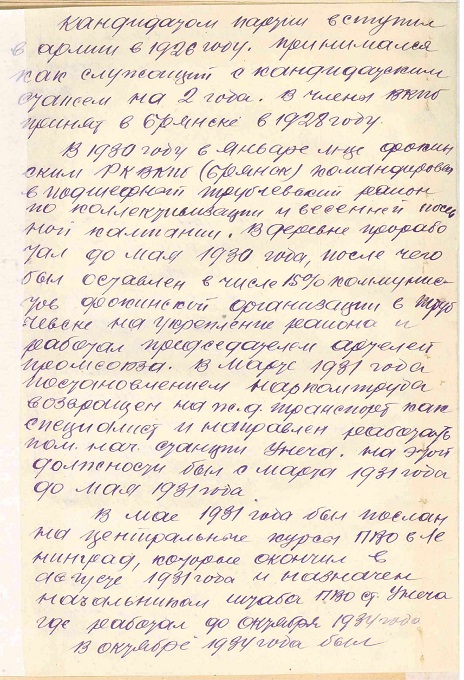 Кандидатом партии вступил
в армии в 1926 году. Принимался
как служащий с кандидатским
стажем на 2 года. В члены ВКПб
принят в Брянске в 1928 году.
В 1930 году в январе м-це Фокин
ским РК ВКПб (Брянск) командирован
в подшефный Трубчевский район
по коллективизации и весенней посев
ной кампании. В деревне прорабо
тал до мая 1930 года, после чего
был оставлен в числе 15% коммунис-
тов Фокинской организации в Труб
чевске на укрепление района и
работал председателем артелей
промсоюза. В Марте 1931 года
постановлением наркомтруда
возвращен на ж.д. транспорт как
специалист и направлен работать
пом. нач. станции Унеча. На этой
должности был с марта 1931 года
до мая 1931 года.
В мае 1931 года был послан
на центральные курсы ПВО в Ле
нинград, которые окончил в
августе 1931 года и назначен
начальником штаба ПВО ст. Унеча
где работал до октября 1934 года
В октябре 1934 года был